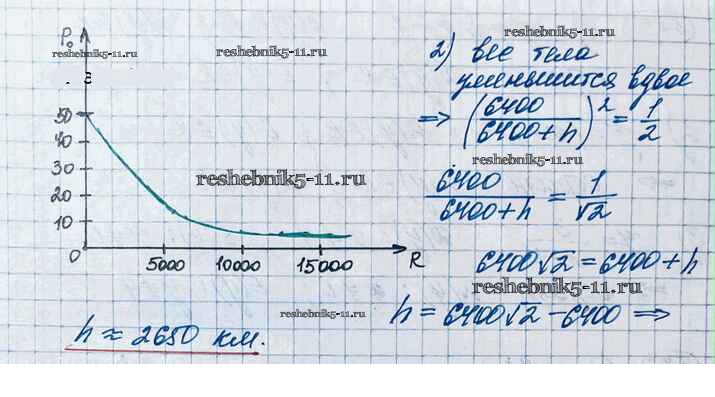 P₀
reshebnik5-11.ru
в
50
40
30
20
10
0
5000 10000 15000 R
reshebnik5-11.ru
reshebnik5-11.ru
h ≈ 2650 км.
reshebnik5-11.ru
2) вес тела
reshebnik5-11.ru
уменьшится вдвое
=> (6400/(6400+h))² = 1/2
reshebnik5-11.ru
6400/(6400+h) = 1/√2
6400√2 = 6400+h
reshebnik5-11.ru
h = 6400√2 - 6400 =>